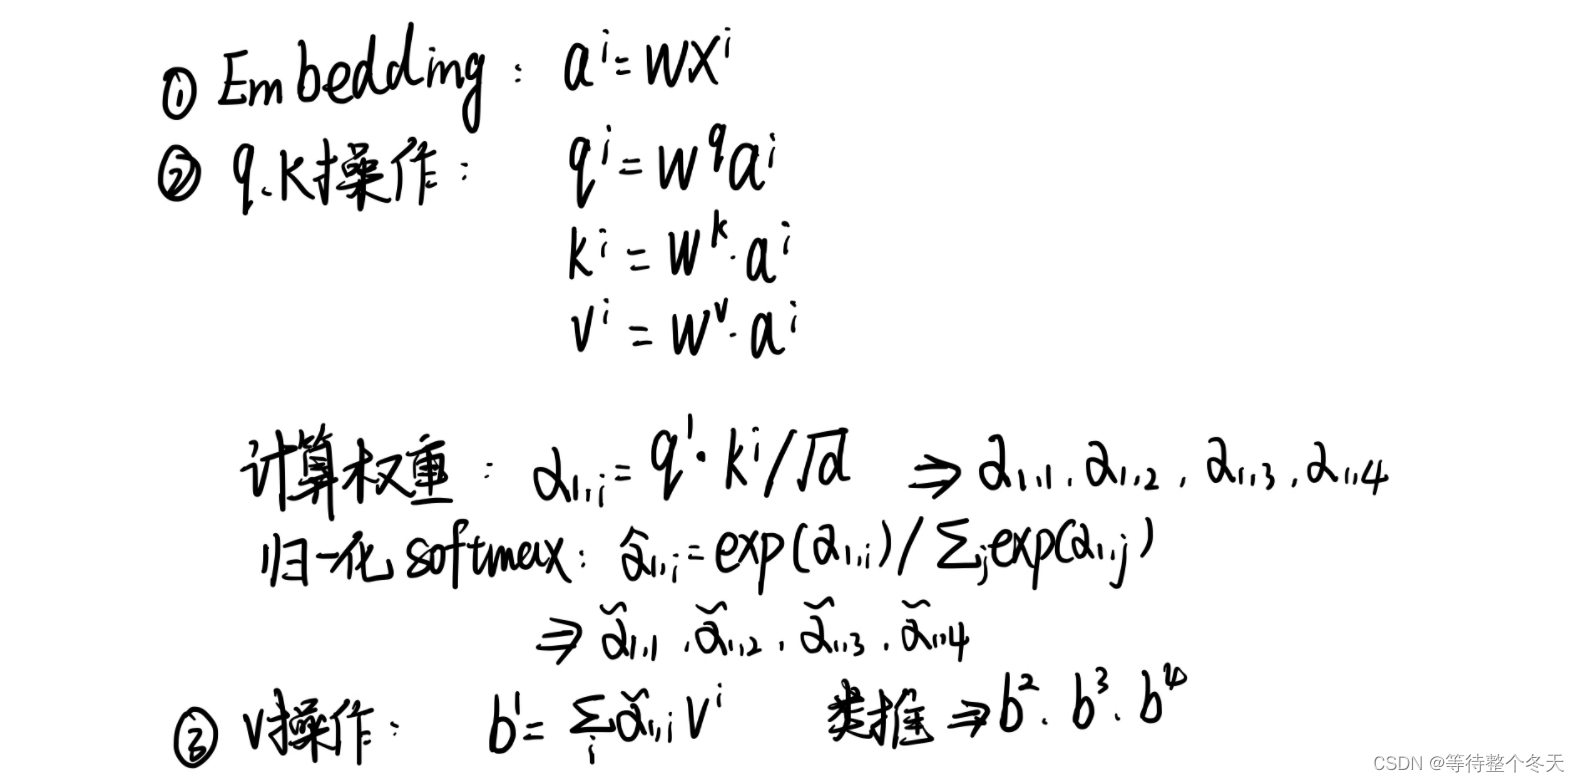 ① Embedding： aⁱ=wxⁱ
② q.k操作： qⁱ=w^q aⁱ
kⁱ=w^k·aⁱ
vⁱ=w^v·aⁱ
计算权重：α₁,ᵢ=q¹·kⁱ/√d ⇒ α₁,₁，α₁,₂，α₁,₃，α₁,₄
归一化softmax：α̂₁,ᵢ=exp(α₁,ᵢ)/Σⱼexp(α₁,ⱼ)
⇒ α̃₁,₁，α̃₁,₂，α̃₁,₃，α̃₁,₄
③ v操作： b¹=Σᵢα̃₁,ᵢvⁱ 类推⇒b².b³.b⁴
CSDN @等待整个冬天